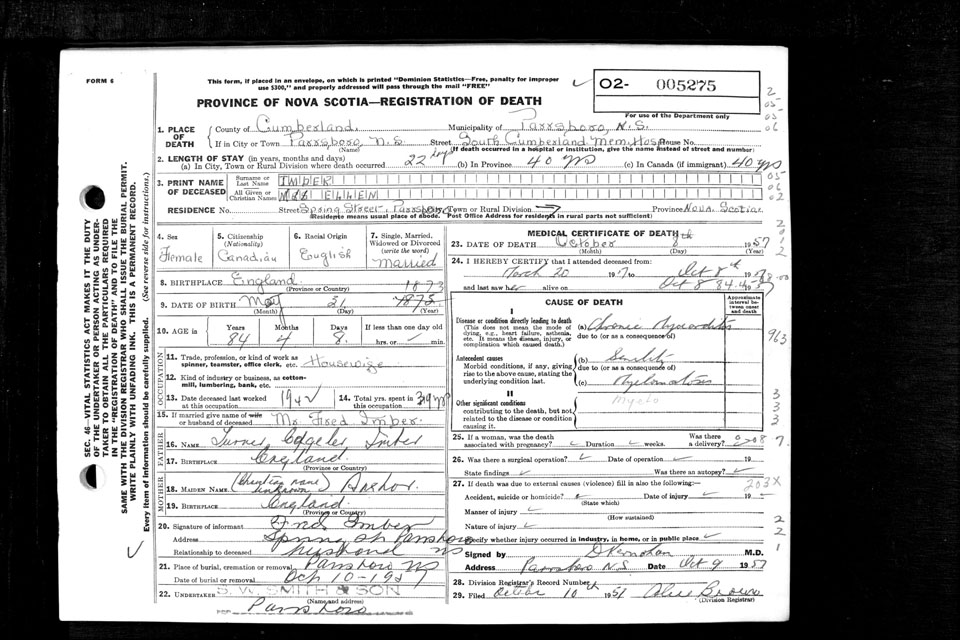 FORM 6
This form, if placed in an envelope, on which is printed "Dominion Statistics—Free, penalty for improper
use $300," and properly addressed will pass through the mail "FREE"
02- 005275
For use of the Department only
PROVINCE OF NOVA SCOTIA—REGISTRATION OF DEATH
1. PLACE OF DEATH
County of Cumberland. Municipality of Parrsboro, N.S.
If in City or Town Parrsboro, N.S Street South Cumberland Mem. Hosp House No.
(Name) (If death occurred in a hospital or institution, give the name instead of street and number)
2. LENGTH OF STAY (in years, months and days)
(a) In City, Town or Rural Division where death occurred 22 days (b) In Province 40 yrs (c) In Canada (if immigrant) 40 yrs
3. PRINT NAME OF DECEASED
Surname or Last Name IMBER
All Given or Christian Names ELLEN
RESIDENCE No. Street Spring Street, Parrsboro Town or Rural Division Province Nova Scotia
(Residents means usual place of abode. Post Office Address for residents in rural parts not sufficient)
4. Sex
Female
5. Citizenship
(Nationality)
Canadian
6. Racial Origin
English
7. Single, Married,
Widowed or Divorced
(write the word)
Married
8. BIRTHPLACE England
(Province or Country)
1873
9. DATE OF BIRTH May 31 1875
(Month) (Day) (Year)
10. AGE in
Years Months Days If less than one day old
84 4 8. hrs. or min.
OCCUPATION
11. Trade, profession, or kind of work as
spinner, teamster, office clerk, etc. Housewife
12. Kind of industry or business, as cotton-
mill, lumbering, bank, etc.
13. Date deceased last worked
at this occupation 1942
14. Total yrs. spent in
this occupation 39 yrs
15. If married give name of wife
or husband of deceased Mr Fred Imber
FATHER
16. Name Turner Imber
17. Birthplace England
(Province or Country)
MOTHER
18. Maiden Name (Christian name unknown) Anchor
19. Birthplace England
(Province or Country)
20. Signature of informant Fred Imber
Address Spring St Parrsboro
Relationship to deceased husband NS
21. Place of burial, cremation or removal Parrsboro NS
Date of burial or removal Oct 10-1957
22. UNDERTAKER S. W. SMITH & SON
(Name and Address)
PER Parrsboro
MEDICAL CERTIFICATE OF DEATH
23. DATE OF DEATH October 8th 1957
(Month) (Day) (Year)
24. I HEREBY CERTIFY that I attended deceased from:
March 20 1957 to Oct 8th 1957
and last saw her alive on Oct 8
CAUSE OF DEATH
Approximate
interval be-
tween onset
and death
I
Disease or condition directly leading to death
(This does not mean the mode of
dying, e.g., heart failure, asthenia,
etc. It means the disease, injury, or
complication which caused death.)
(a) Chronic Myocarditis
due to (or as a consequence of)
Antecedent causes
Morbid conditions, if any, giving
rise to the above cause, stating the
underlying condition last.
(b) Senility
due to (or as a consequence of)
(c) Myelomatosis
II
Other significant conditions
contributing to the death, but not
related to the disease or condition
causing it.
Myelo
25. If a woman, was the death
associated with pregnancy? Duration weeks. Was there
a delivery?
26. Was there a surgical operation? Date of operation 19
State findings Was there an autopsy?
27. If death was due to external causes (violence) fill in also the following:—
Accident, suicide or homicide? Date of injury 19
(State which)
Manner of injury
(How sustained)
Nature of injury
Specify whether injury occurred in industry, in home, or in public place
Signed by M.D.
Address Parrsboro N.S. Date Oct 9 1957
28. Division Registrar's Record Number
29. Filed October 10th 1957 Alice Brown
(Division Registrar)
SEC. 46—VITAL STATISTICS ACT MAKES IT THE DUTY
OF THE UNDERTAKER OR PERSON ACTING AS UNDER-
TAKER TO OBTAIN ALL THE PARTICULARS REQUIRED
IN THE "REGISTRATION OF DEATH" AND TO FILE THE
SAME WITH THE DIVISION REGISTRAR WHO SHALL ISSUE THE BURIAL PERMIT.
WRITE PLAINLY WITH UNFADING INK. THIS IS A PERMANENT RECORD.
Every item of information should be carefully supplied. (See reverse side for instructions.)